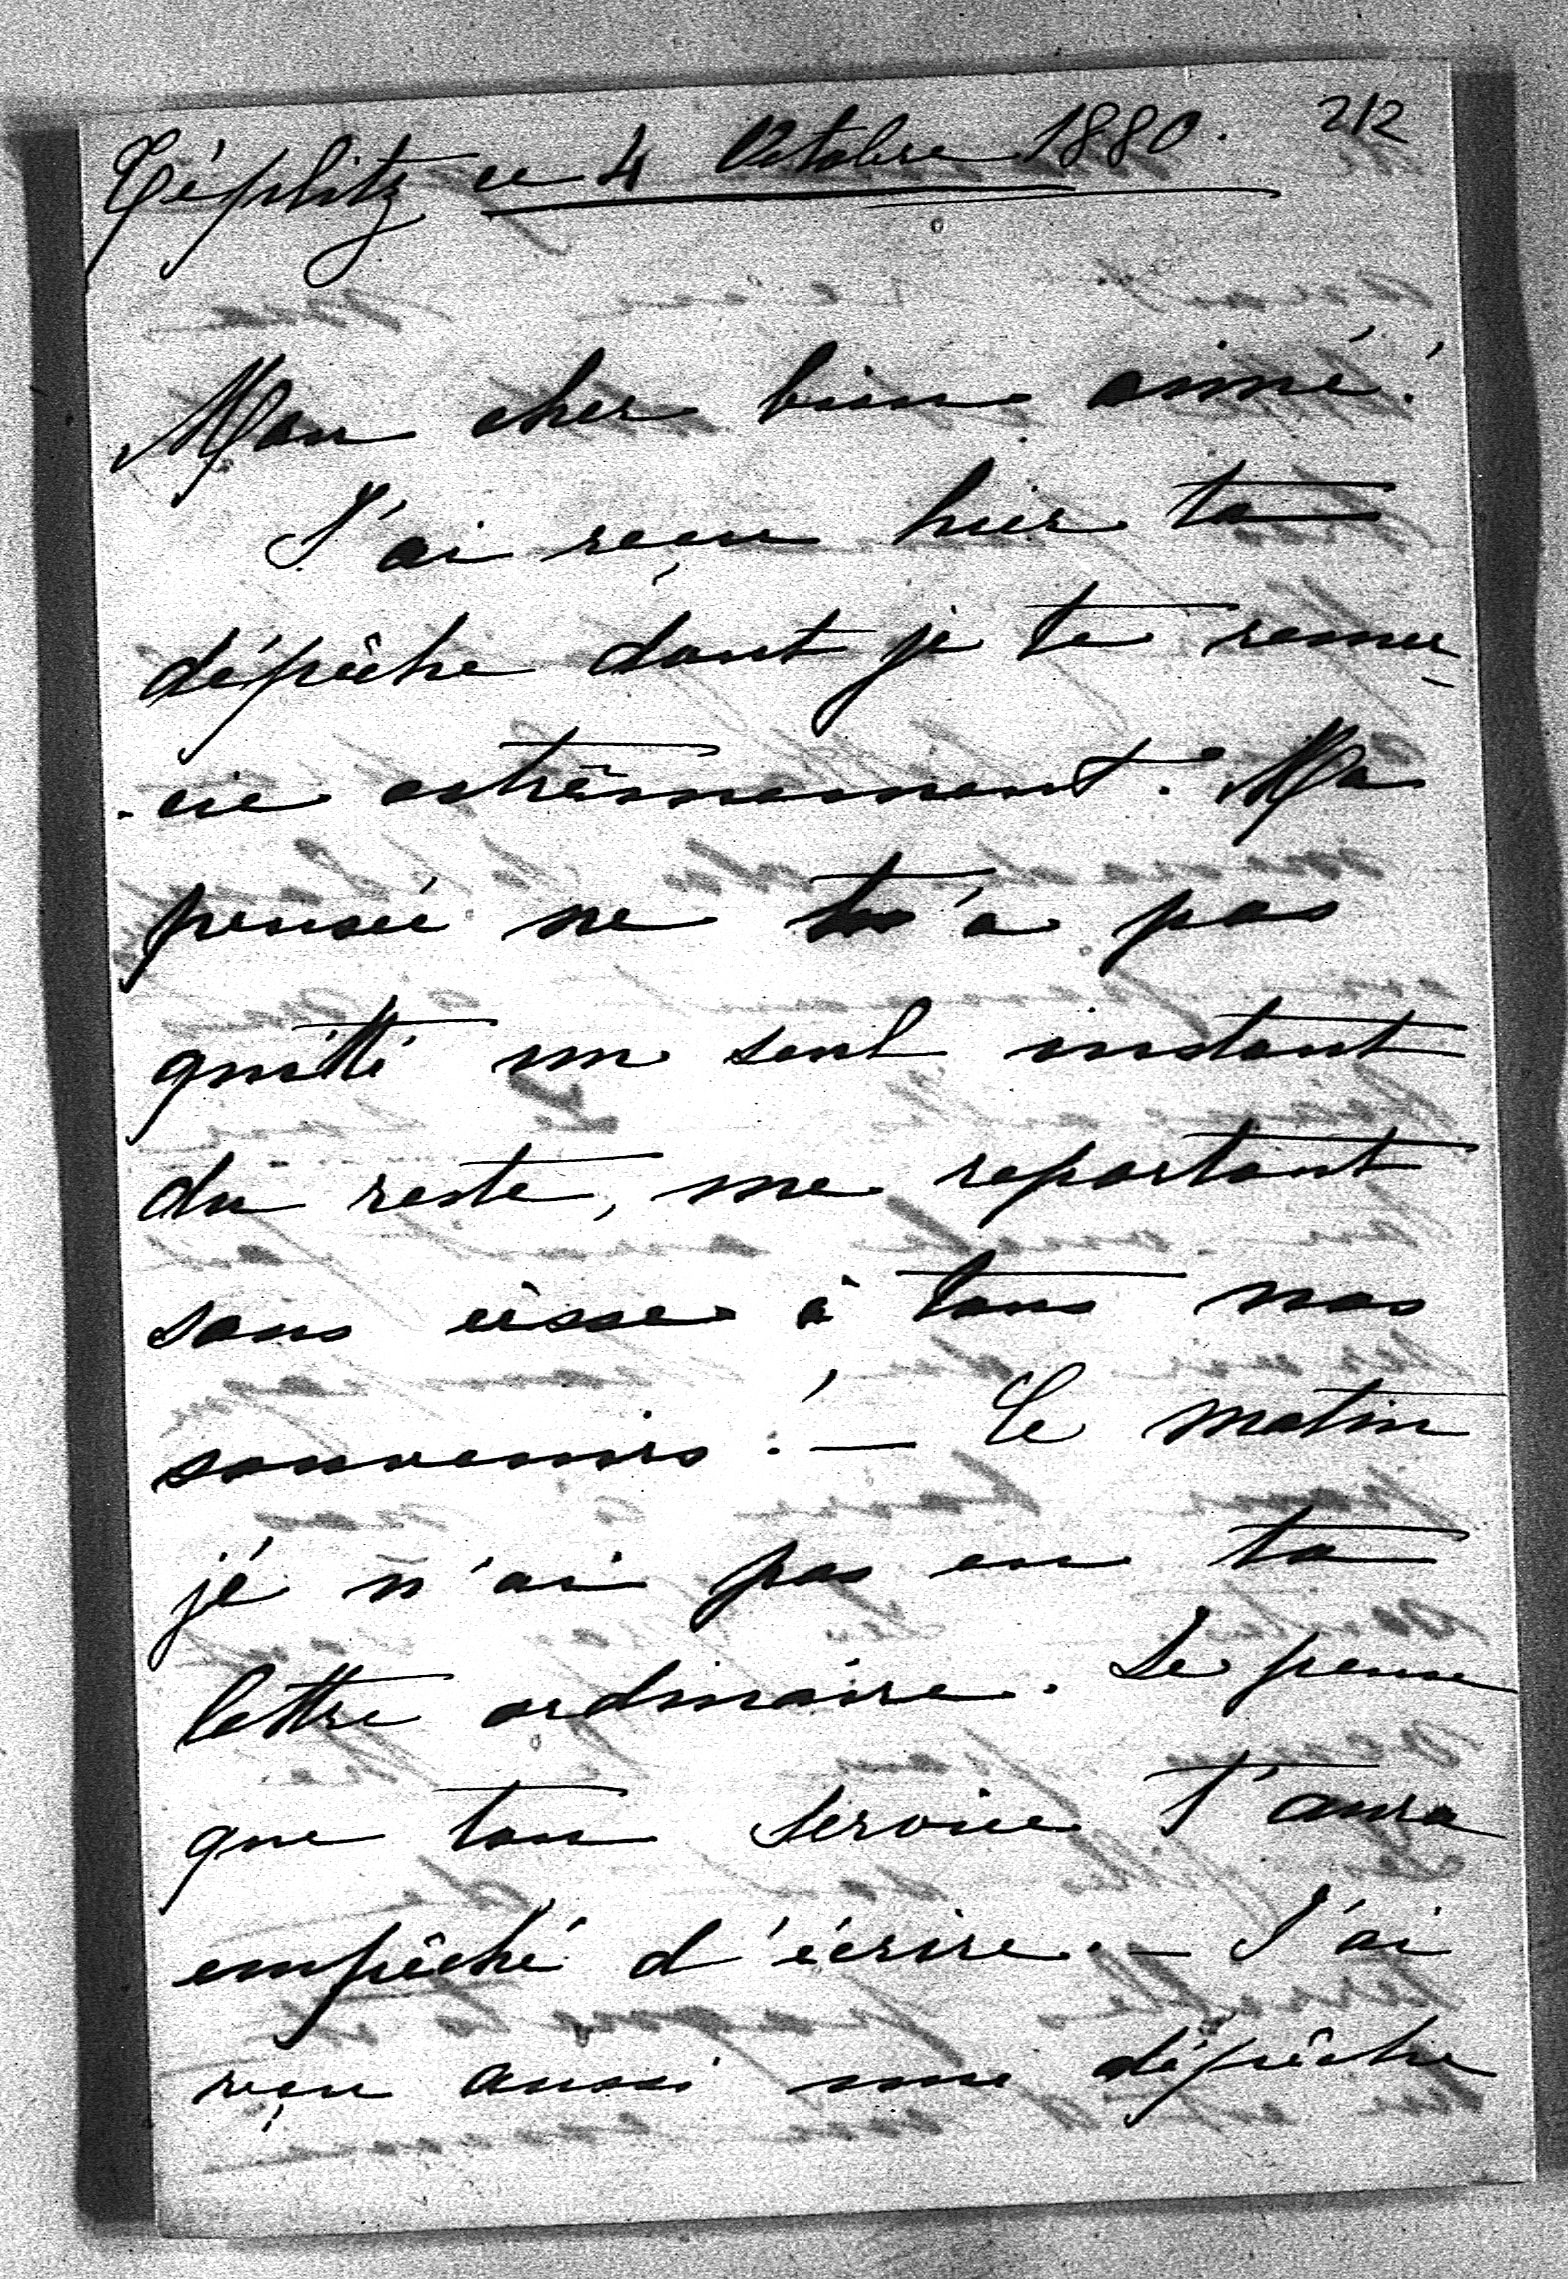 Téplitz ce 4 Octobre 1880. 212
Mon cher bien aimé!
J'ai reçu hier ta
dépêche dont je te remer-
-cie extrêmement. Ma
pensée ne t'a pas
quitté un seul instant
du reste, me reportant
sans cesse à tous nos
souvenirs! — Ce matin
je n'ai pas eu ta
lettre ordinaire. Je pense
que ton service t'aura
empêché d'écrire. — J'ai
reçu aussi une dépêche